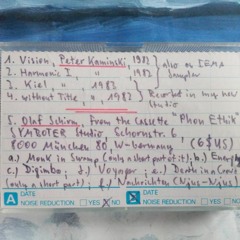 1. Vision, Peter Kaminski, 1982
2. Harmonic I, " 1982
3. Kiel, " 1983
4. without Title, " 1982
also on IEMA Sampler
Recorded in my new Studio
5. Olaf Schirm, from the Cassette "Phon Ethik"
SYMBOTER Studio, Schornstr. 6,
8000 München 80, W-Germany! (6$US)
a.) Monk in Swamp (only a short part of it); b.) Energy
c.) Digimbo; d.) Voyager; e.) Death in a
(only a short part); f.) Nachrichten (Njus-Njus)
A DATE
NOISE REDUCTION YES NO
DATE
NOISE REDUCTION